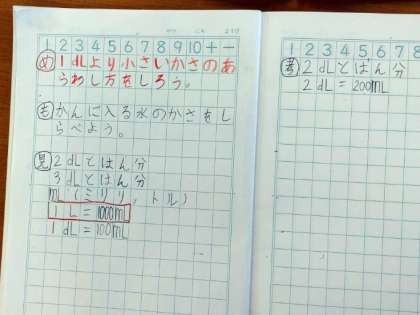 1 2 3 4 5 6 7 8 9 10 + −
め 1dLより小さいかさのあ
らわし方をしろう。
も かんに入る水のかさをし
らべよう。
見 2dLとはん分
3dLとはん分
mL(ミリリットル)
1L=1000mL
1dL=100mL
1 2 3 4 5 6 7 8
考 2dLとはん分
2dL=200mL